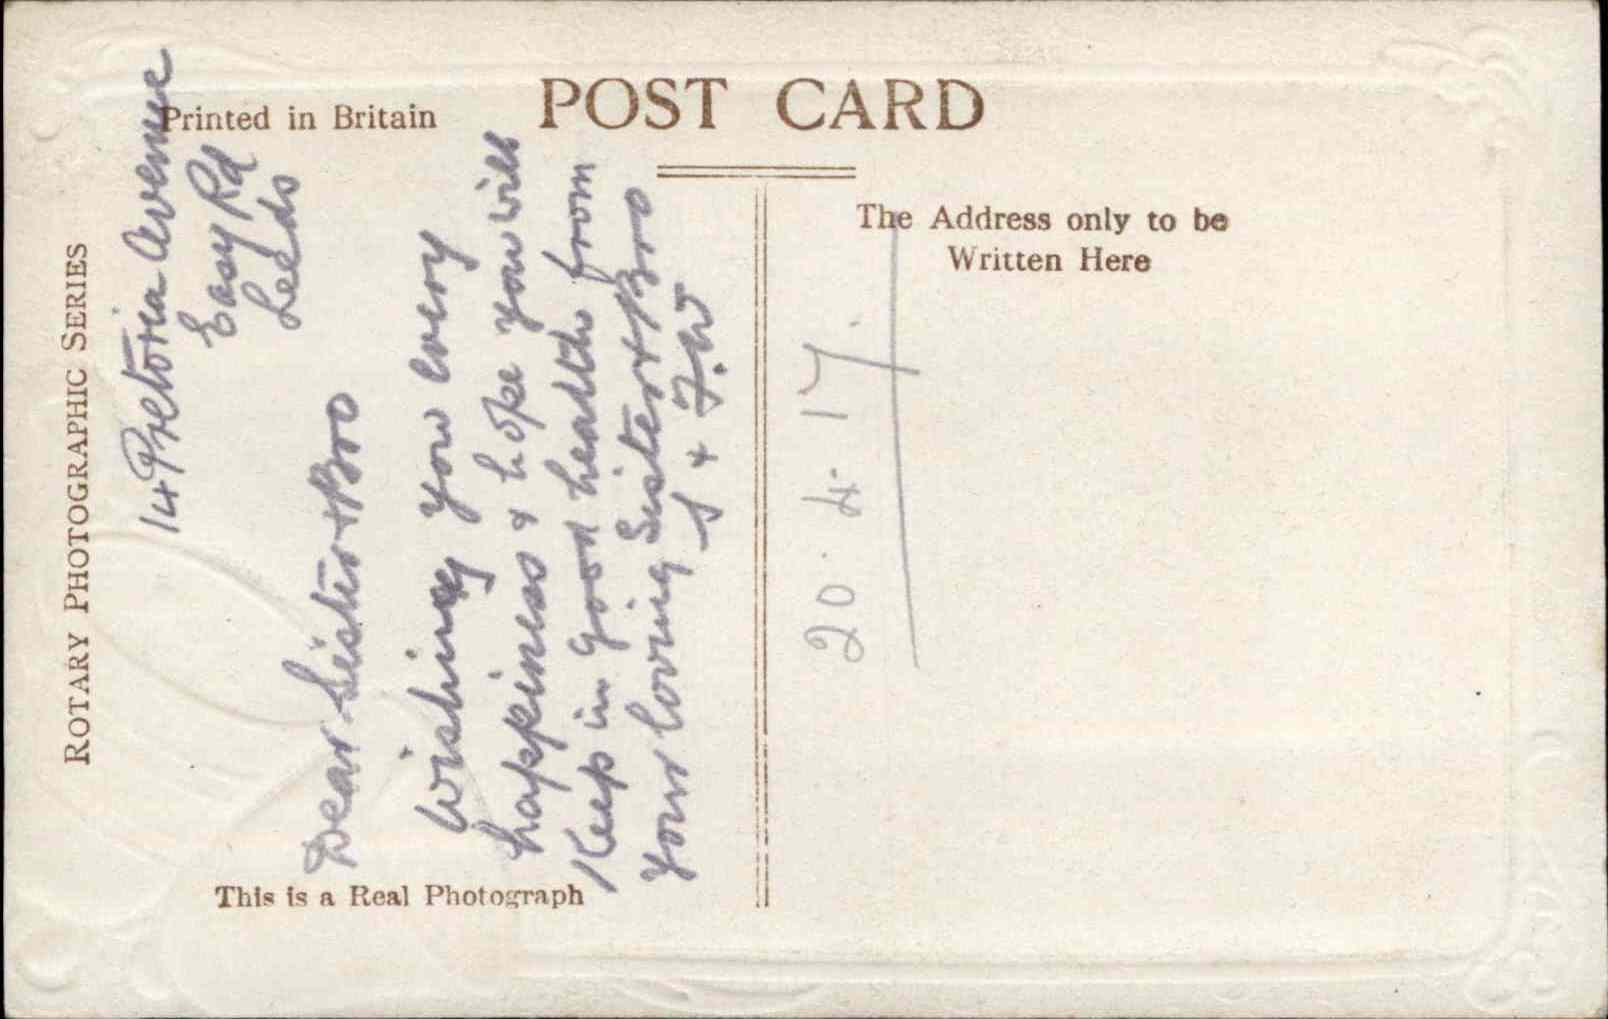 POST CARD
Printed in Britain
ROTARY PHOTOGRAPHIC SERIES
The Address only to be
Written Here
This is a Real Photograph
14 Pretoria Avenue
Easy Rd
Leeds
Dear Sister & Bro
Wishing you every
happiness & hope you will
Keep in good health from
your loving Sister & Bro
J & F.W
20.4.17.